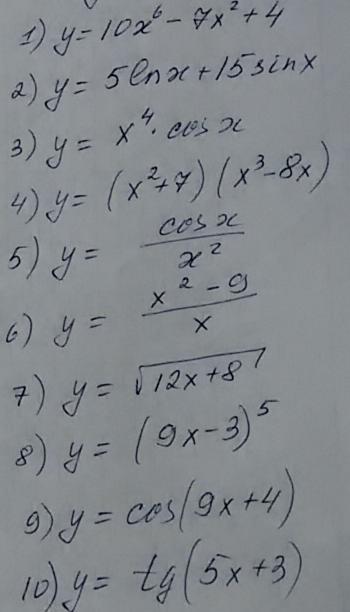 1) y = 10x⁶ - 7x² + 4
2) y = 5lnx + 15sinx
3) y = x⁴ · cosx
4) y = (x² + 7) (x³ - 8x)
5) y = cosx / x²
6) y = x² - 9 / x
7) y = √12x + 8
8) y = (9x - 3)⁵
9) y = cos(9x + 4)
10) y = tg(5x + 3)